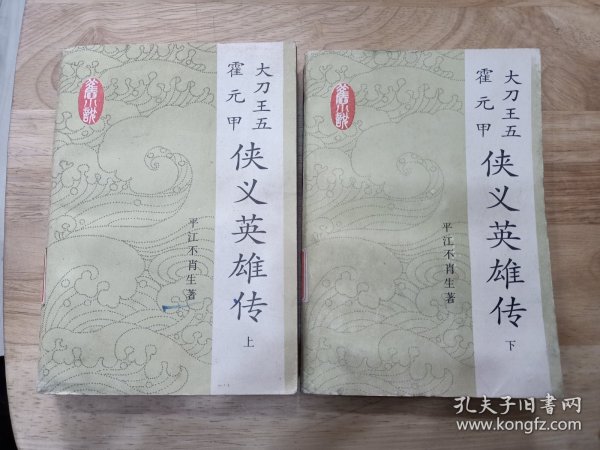 大刀王五
霍元甲
侠义英雄传
上
平江不肖生著
旧小说
大刀王五
霍元甲
侠义英雄传
下
平江不肖生著
旧小说
孔夫子旧书网
www.kongfz.com